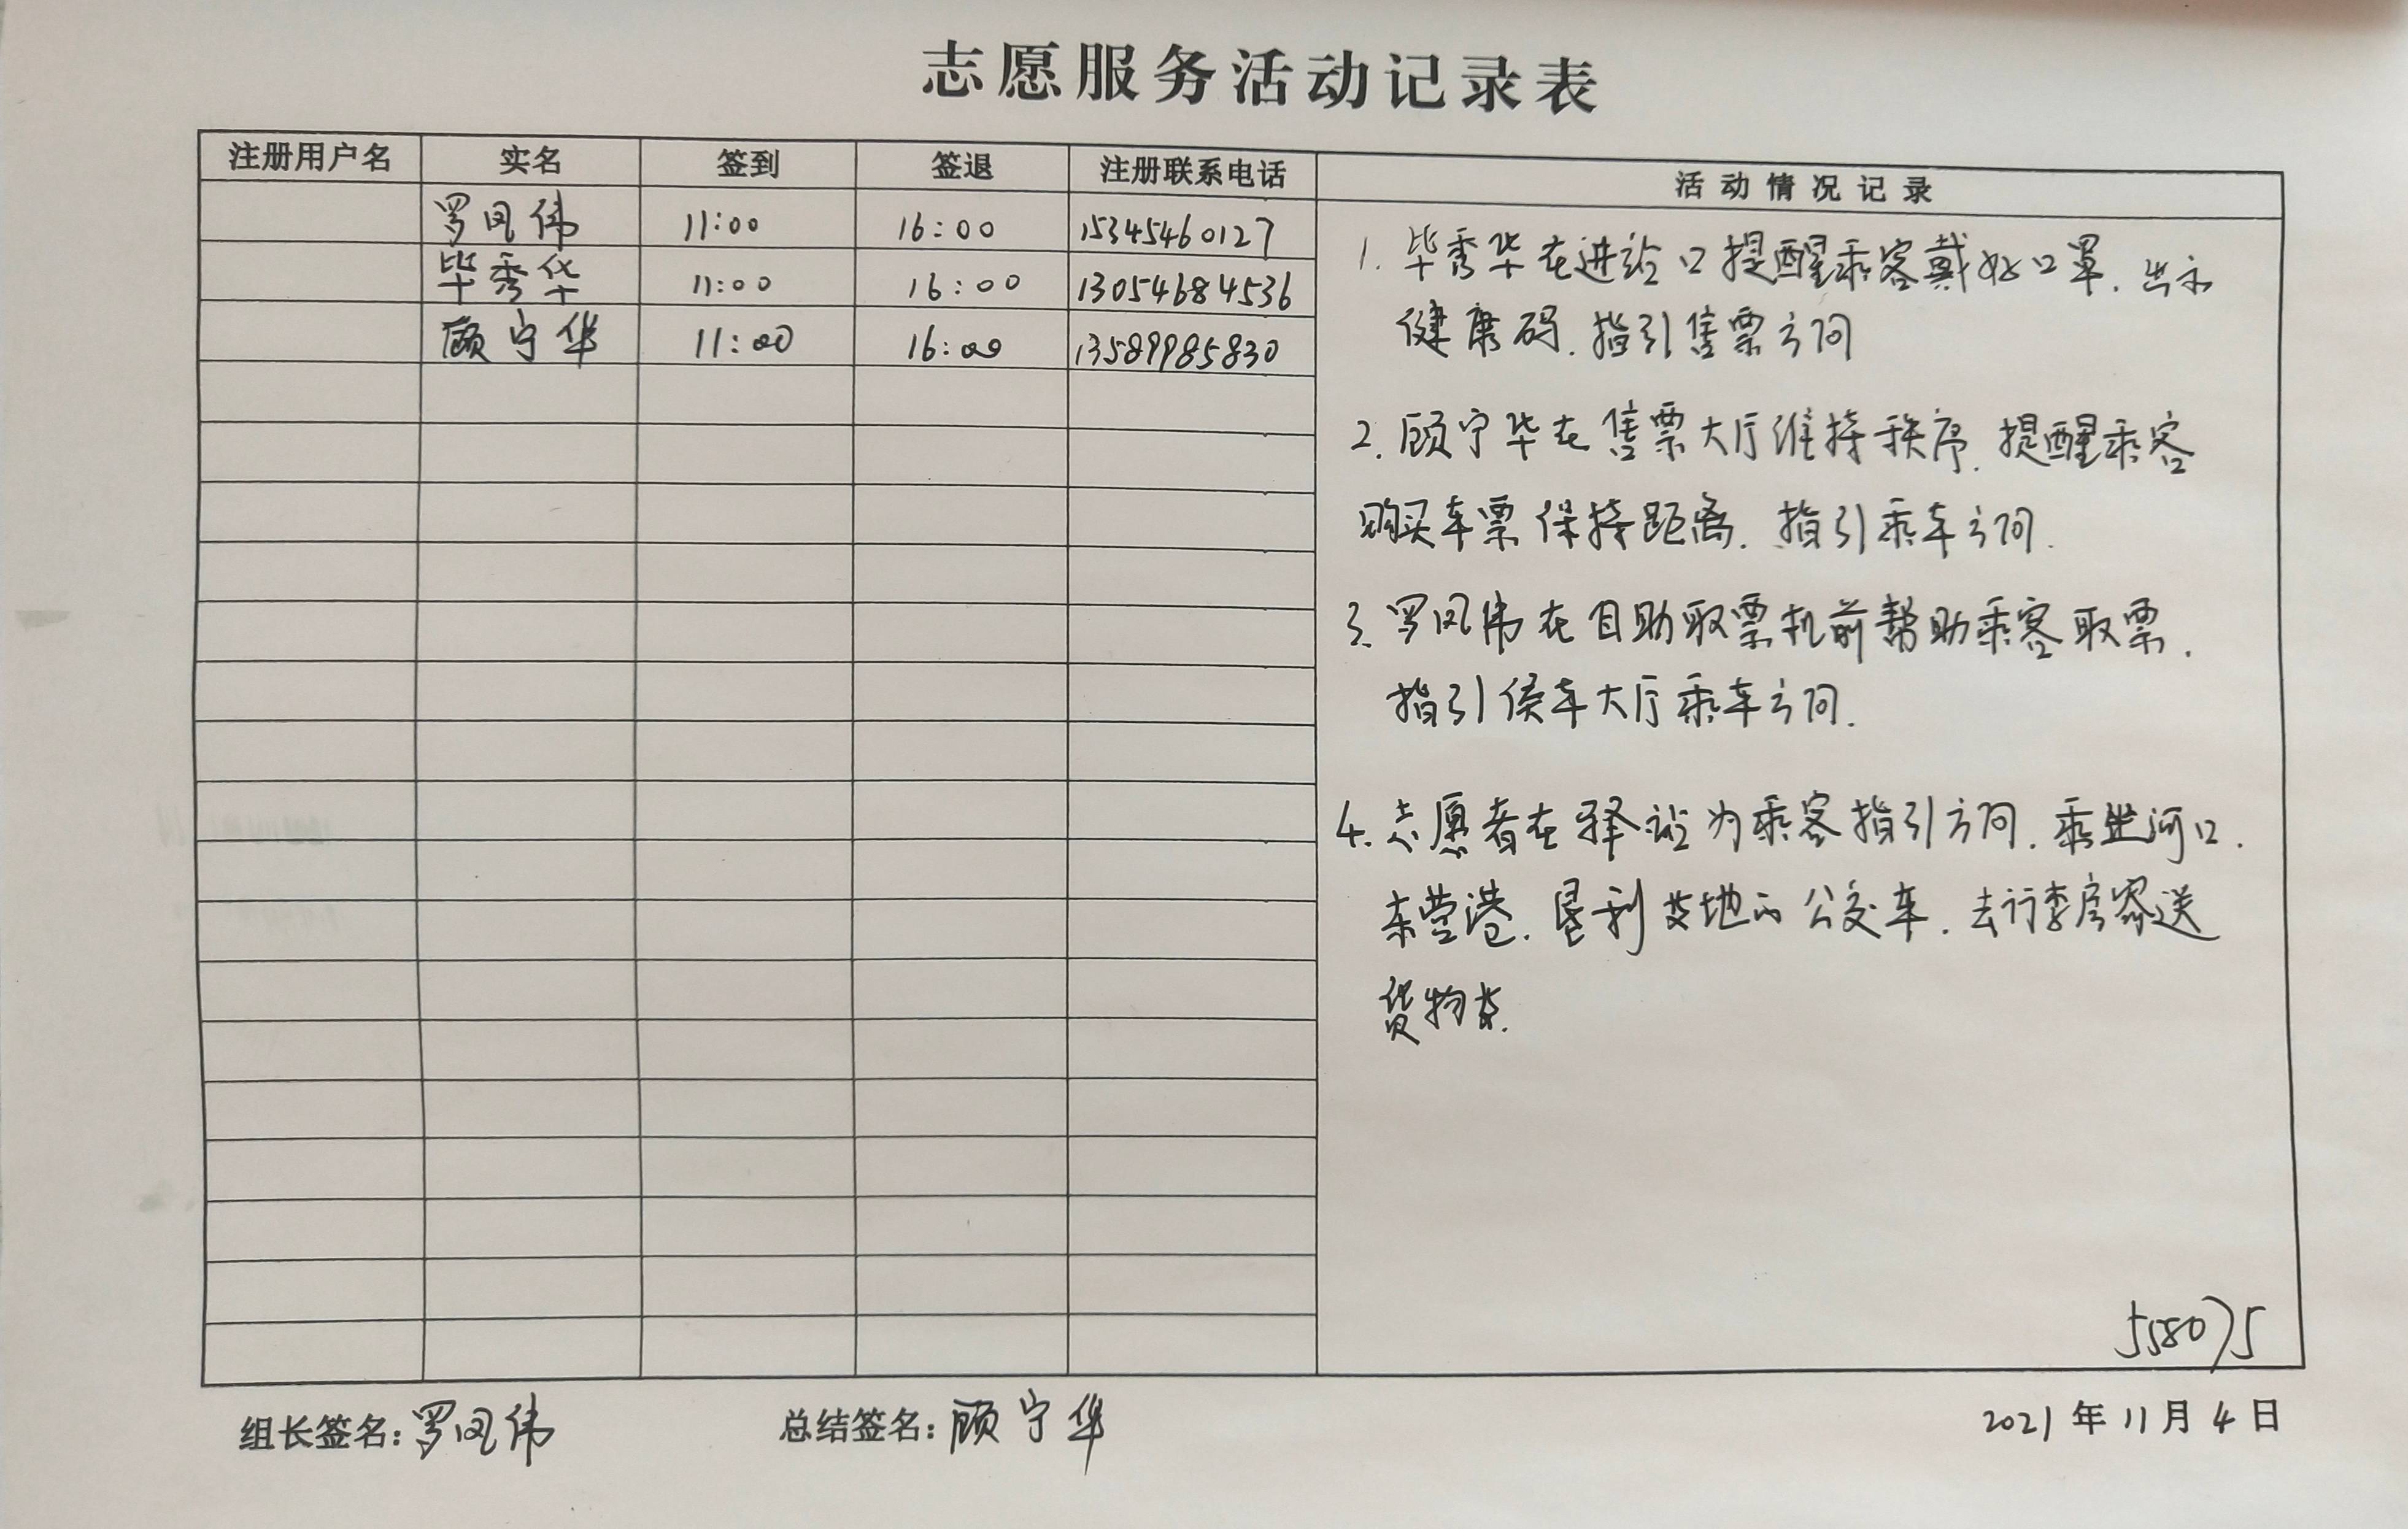 志愿服务活动记录表
注册用户名 实名 签到 签退 注册联系电话 活动情况记录
罗凤伟 11:00 16:00 15345460127
毕秀华 11:00 16:00 13054684536
顾宁华 11:00 16:00 13589985830
1. 毕秀华在进站口提醒乘客戴好口罩. 出示
健康码. 指引售票方向
2. 顾宁华在售票大厅维持秩序. 提醒乘客
购买车票保持距离. 指引乘车方向.
3. 罗凤伟在自助取票机前帮助乘客取票.
指引候车大厅乘车方向.
4. 志愿者在驿站为乘客指引方向. 乘坐河口.
东营港. 垦利等地的公交车. 去行李房寄送
货物等.
558075
组长签名: 罗凤伟 总结签名: 顾宁华 2021年11月4日